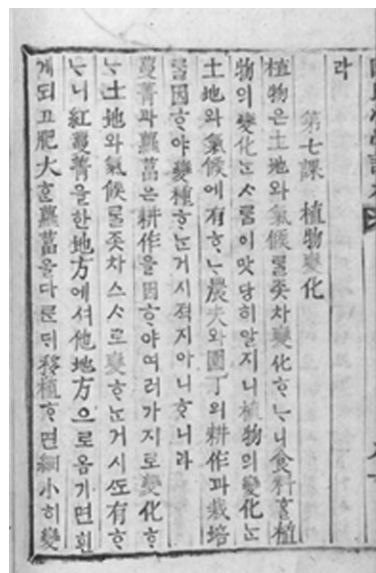 라
第七課 植物變化
植物은土地와氣候ᄅᆞᆯ좃차變化ᄒᆞᄂᆞ니食料ᄒᆞᆯ植
物의變化ᄂᆞᆫ사ᄅᆞᆷ이맛당히알지니植物의變化ᄂᆞᆫ
土地와氣候에有ᄒᆞ고農夫와園丁의耕作과栽培
ᄅᆞᆯ因ᄒᆞ야變種ᄒᆞᄂᆞᆫ거시적지아니ᄒᆞ니라
蔓菁과蘿葍은耕作을因ᄒᆞ야여러가지로變化ᄒᆞ
ᄂᆞ土地와氣候ᄅᆞᆯ좃차스ᄉᆞ로變ᄒᆞᄂᆞᆫ거시ᄯᅩ有ᄒᆞ
ᄂᆞ니紅蔓菁을한地方에셔他地方으로옴기면흰
게되고肥大ᄒᆞᆫ蘿葍을다른ᄃᆡ移植ᄒᆞ면細小히變